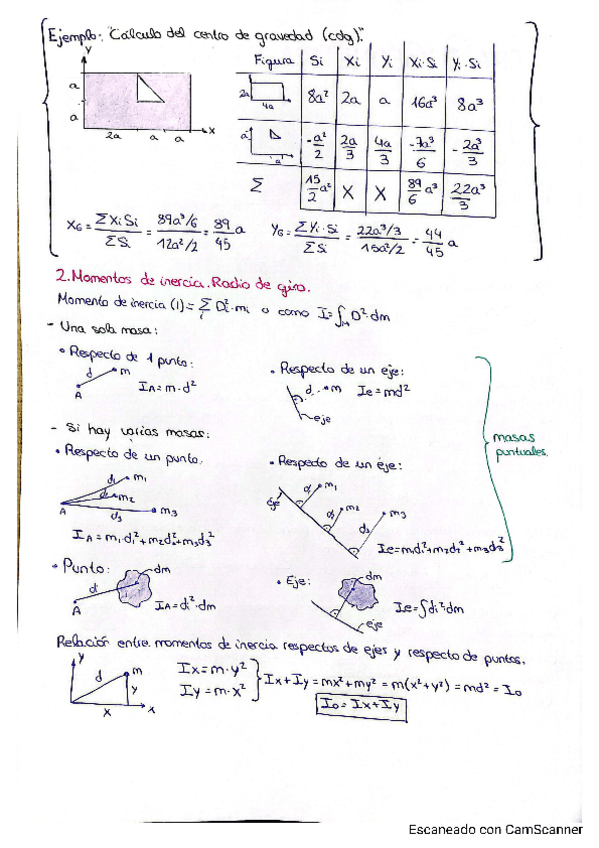 Ejemplo: "Cálculo del centro de gravedad (cdg)."
Y
a
a
2a a a
x
Figura Si Xi Yi Xi·Si Yi·Si
2a 4a 8a² 2a a 16a³ 8a³
a a -a²/2 2a/3 4a/3 -7a³/6 -2a³/3
Σ 15/2 a² X X 89/6 a³ 22a³/3
XG = ΣXi Si / ΣSi = 89a³/6 / 12a²/2 = 89/45 a YG = ΣYi·Si / ΣSi = 22a³/3 / 15a²/2 = 44/45 a
2. Momentos de inercia. Radio de giro.
Momento de inercia (I) = Σi Di²·mi o como I = ∫M D²·dm
- Una sola masa:
• Respecto de 1 punto:
d m
A
IA = m·d²
• Respecto de un eje:
d m Ie = md²
eje
- Si hay varias masas:
• Respecto de un punto.
d1 m1
d2 m2
A d3 m3
IA = m1d1² + m2d2² + m3d3²
• Respecto de un eje:
eje d1 m1
d2 m2
d3 m3
Ie = md1² + m2d2² + m3d3²
masas
puntuales.
• Punto:
dm
d
A
IA = di²·dm
• Eje:
dm
eje
Ie = ∫di²dm
Relación entre momentos de inercia respectos de ejes y respecto de puntos.
y
d m
y
x x
Ix = m·y²
Iy = m·x²
Ix + Iy = mx² + my² = m(x² + y²) = md² = Io
Io = Ix + Iy
Escaneado con CamScanner